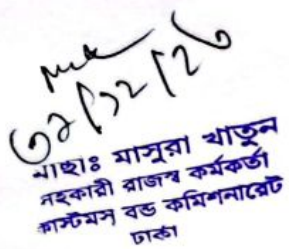 মোছাঃ মাসুরা খাতুন
সহকারী রাজস্ব কর্মকর্তা
কাস্টমস বন্ড কমিশনারেট
ঢাকা